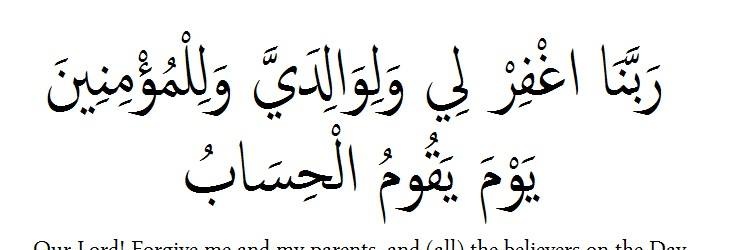 رَبَّنَا اغْفِرْ لِي وَلِوَالِدَيَّ وَلِلْمُؤْمِنِينَ
يَوْمَ يَقُومُ الْحِسَابُ
Our Lord! Forgive me and my parents, and (all) the believers on the Day